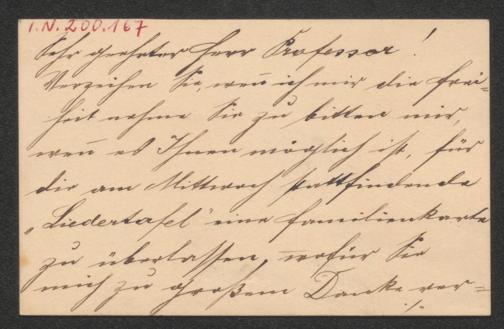 I.N. 200.167
Sehr geehrter Herr Professor!
Verzeihen Sie, wen̄ ich mir die Frei=
heit nehme Sie zu bitten mir,
wen̄ es Ihnen möglich ist, für
die am Mittwoch stattfindende
„Liedertafel" eine Familienkarte
zu überlassen, wofür Sie
mich zu großem Danke ver=
./.